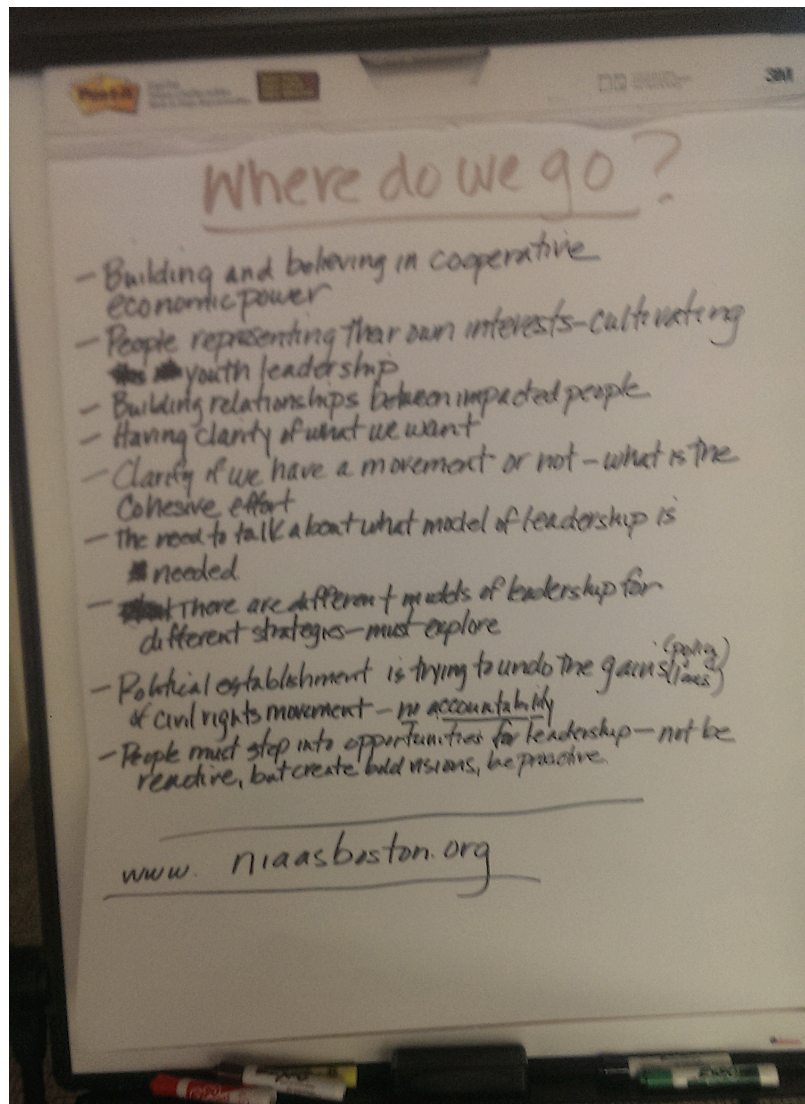 Post-it
3M
Where do we go?
- Building and believing in cooperative
economic power
- People representing their own interests - cultivating
youth leadership
- Building relationships between impacted people
- Having clarity of what we want
- Clarify if we have a movement or not - what is the
cohesive effort
- The need to talk about what model of leadership is
needed
- There are different models of leadership for
different strategies - must explore
- Political establishment is trying to undo the gains (policy
laws)
of civil rights movement - no accountability
- People must step into opportunities for leadership - not be
reactive, but create bold visions, be proactive.
www. niaasboston.org